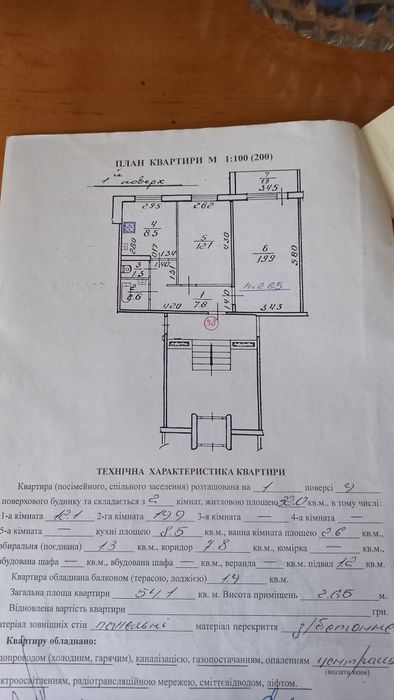 ПЛАН КВАРТИРИ М 1:100 (200)
1й поверх
7
1.9
345
295
262
4
8.5
280
5
12.1
430
6
19.9
580
134
140
131
3
1.3
2
2.6
1
7.8
h=2.65
420
140
343
38
ТЕХНІЧНА ХАРАКТЕРИСТИКА КВАРТИРИ
Квартира (посімейного, спільного заселення) розташована на 1 поверсі 9
поверхового будинку та складається з 2 кімнат, житловою площею 32.0 кв.м., в тому числі:
1-а кімната 12.1 2-га кімната 19.9 3-я кімната — 4-а кімната —
5-а кімната — кухні площею 8.5 кв.м., ванна кімната площею 2.6 кв.м.,
вбиральня (поєднана) 1.3 кв.м., коридор 7.8 кв.м., комірка — кв.м.,
вбудована шафа — кв.м., вбудована шафа — кв.м., веранда — кв.м. підвал 1.2 кв.м.
Квартира обладнана балконом (терасою, лоджією) 1.9 кв.м.
Загальна площа квартири 54.1 кв. м. Висота приміщень 2.65 м.
Відновлена вартість квартири грн.
матеріал зовнішніх стін панельні матеріал перекриття з/бетонне
Квартиру обладнано:
водопроводом (холодним, гарячим), каналізацією, газопостачанням, опаленням централ
(вказати яким)
електроосвітленням, радіотрансляційною мережею, сміттєвідводом, ліфтом.